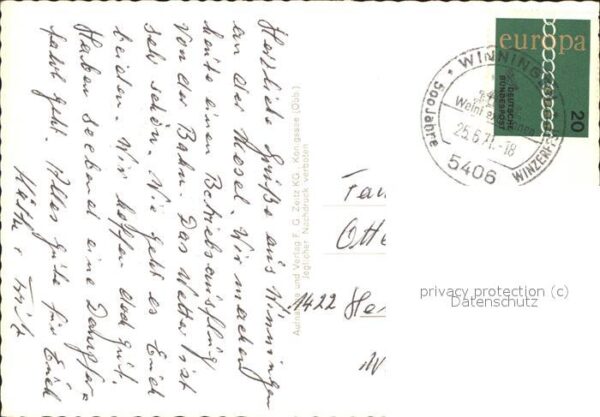 Herzliche Grüße aus Winningen
an der Mosel. Wir machen
heute einen Betriebsausflug
von der Bahn. Das Wetter ist
sehr schön. Wie geht es Euch
beiden. Wir hoffen doch gut.
Haben soeben eine Dampfer-
fahrt geht. Alles gute für Euch
Käthe u. Fritz
Aufnahme und Verlag F. G. Zeitz KG., Königssee (Obb.)
Jeglicher Nachdruck verboten
Fam
Otte
1422 Her
europa
DEUTSCHE
BUNDESPOST
20
WINNINGEN
500 Jahre
25.6.71-18
5406
privacy protection (c)
Datenschutz